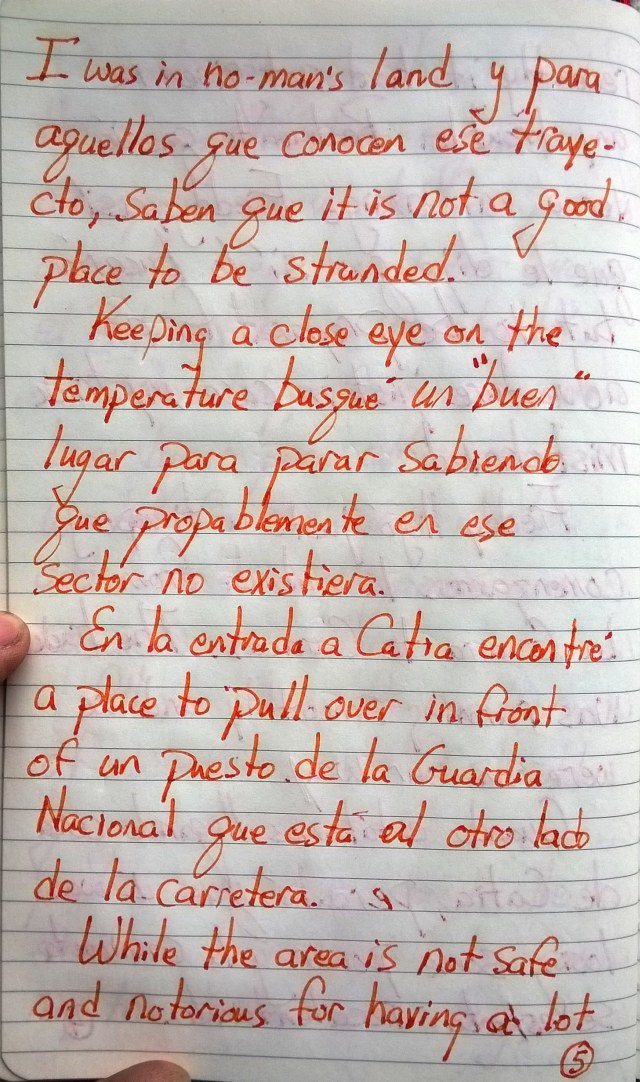 I was in no-man's land y para
aquellos que conocen ese traye-
cto, saben que it is not a good
place to be stranded.
Keeping a close eye on the
temperature busqué un "buen"
lugar para parar sabiendo
que propablemente en ese
sector no existiera.
En la entrada a Catia encontré
a place to pull over in front
of un puesto de la Guardia
Nacional que está al otro lado
de la carretera.
While the area is not safe
and notorious for having a lot
5